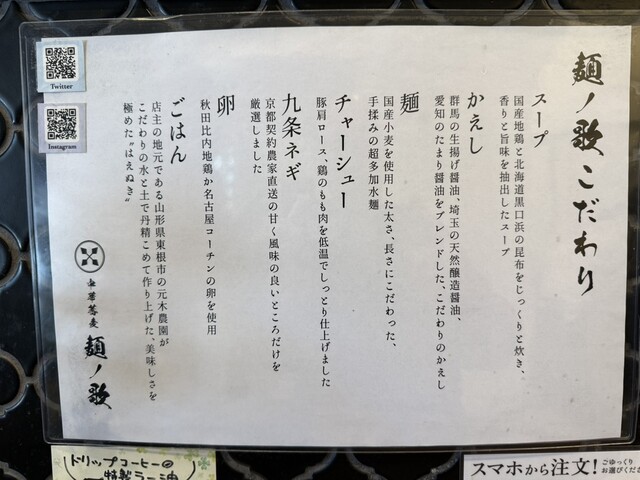 麺ノ歌こだわり
スープ
国産地鶏と北海道黒口浜の昆布をじっくりと炊き、
香りと旨味を抽出したスープ
かえし
群馬の生揚げ醤油、埼玉の天然醸造醤油、
愛知のたまり醤油をブレンドした、こだわりのかえし
麺
国産小麦を使用した太さ、長さにこだわった、
手揉みの超多加水麺
チャーシュー
豚肩ロース、鶏のもも肉を低温でしっとり仕上げました
九条ネギ
京都契約農家直送の甘く風味の良いところだけを
厳選しました
卵
秋田比内地鶏か名古屋コーチンの卵を使用
ごはん
店主の地元である山形県東根市の元木農園が
こだわりの水と土で丹精こめて作り上げた、美味しさを
極めた"はえぬき"
中華蕎麦
麺ノ歌
Twitter
Instagram
ドリップコーヒーの
特製ラー油
スマホから注文!
ごゆっくり
お選びくださ